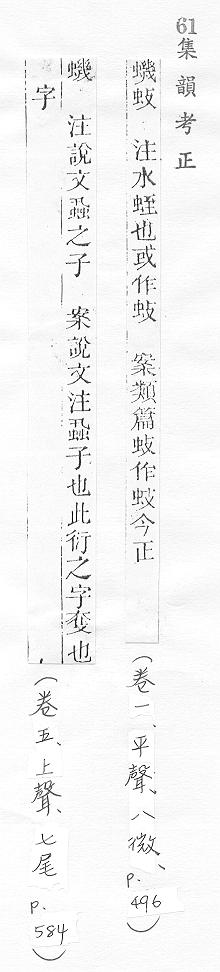 61集韻考正
蟣蚑 注水蛭也或作蚑 案類篇蚑作蚑今正
(卷一、平聲、八微、p. 496)
蟣 注說文蝨之子 案說文注蝨子也此衍之字奪也
字
(卷五、上聲、七尾 p. 584)